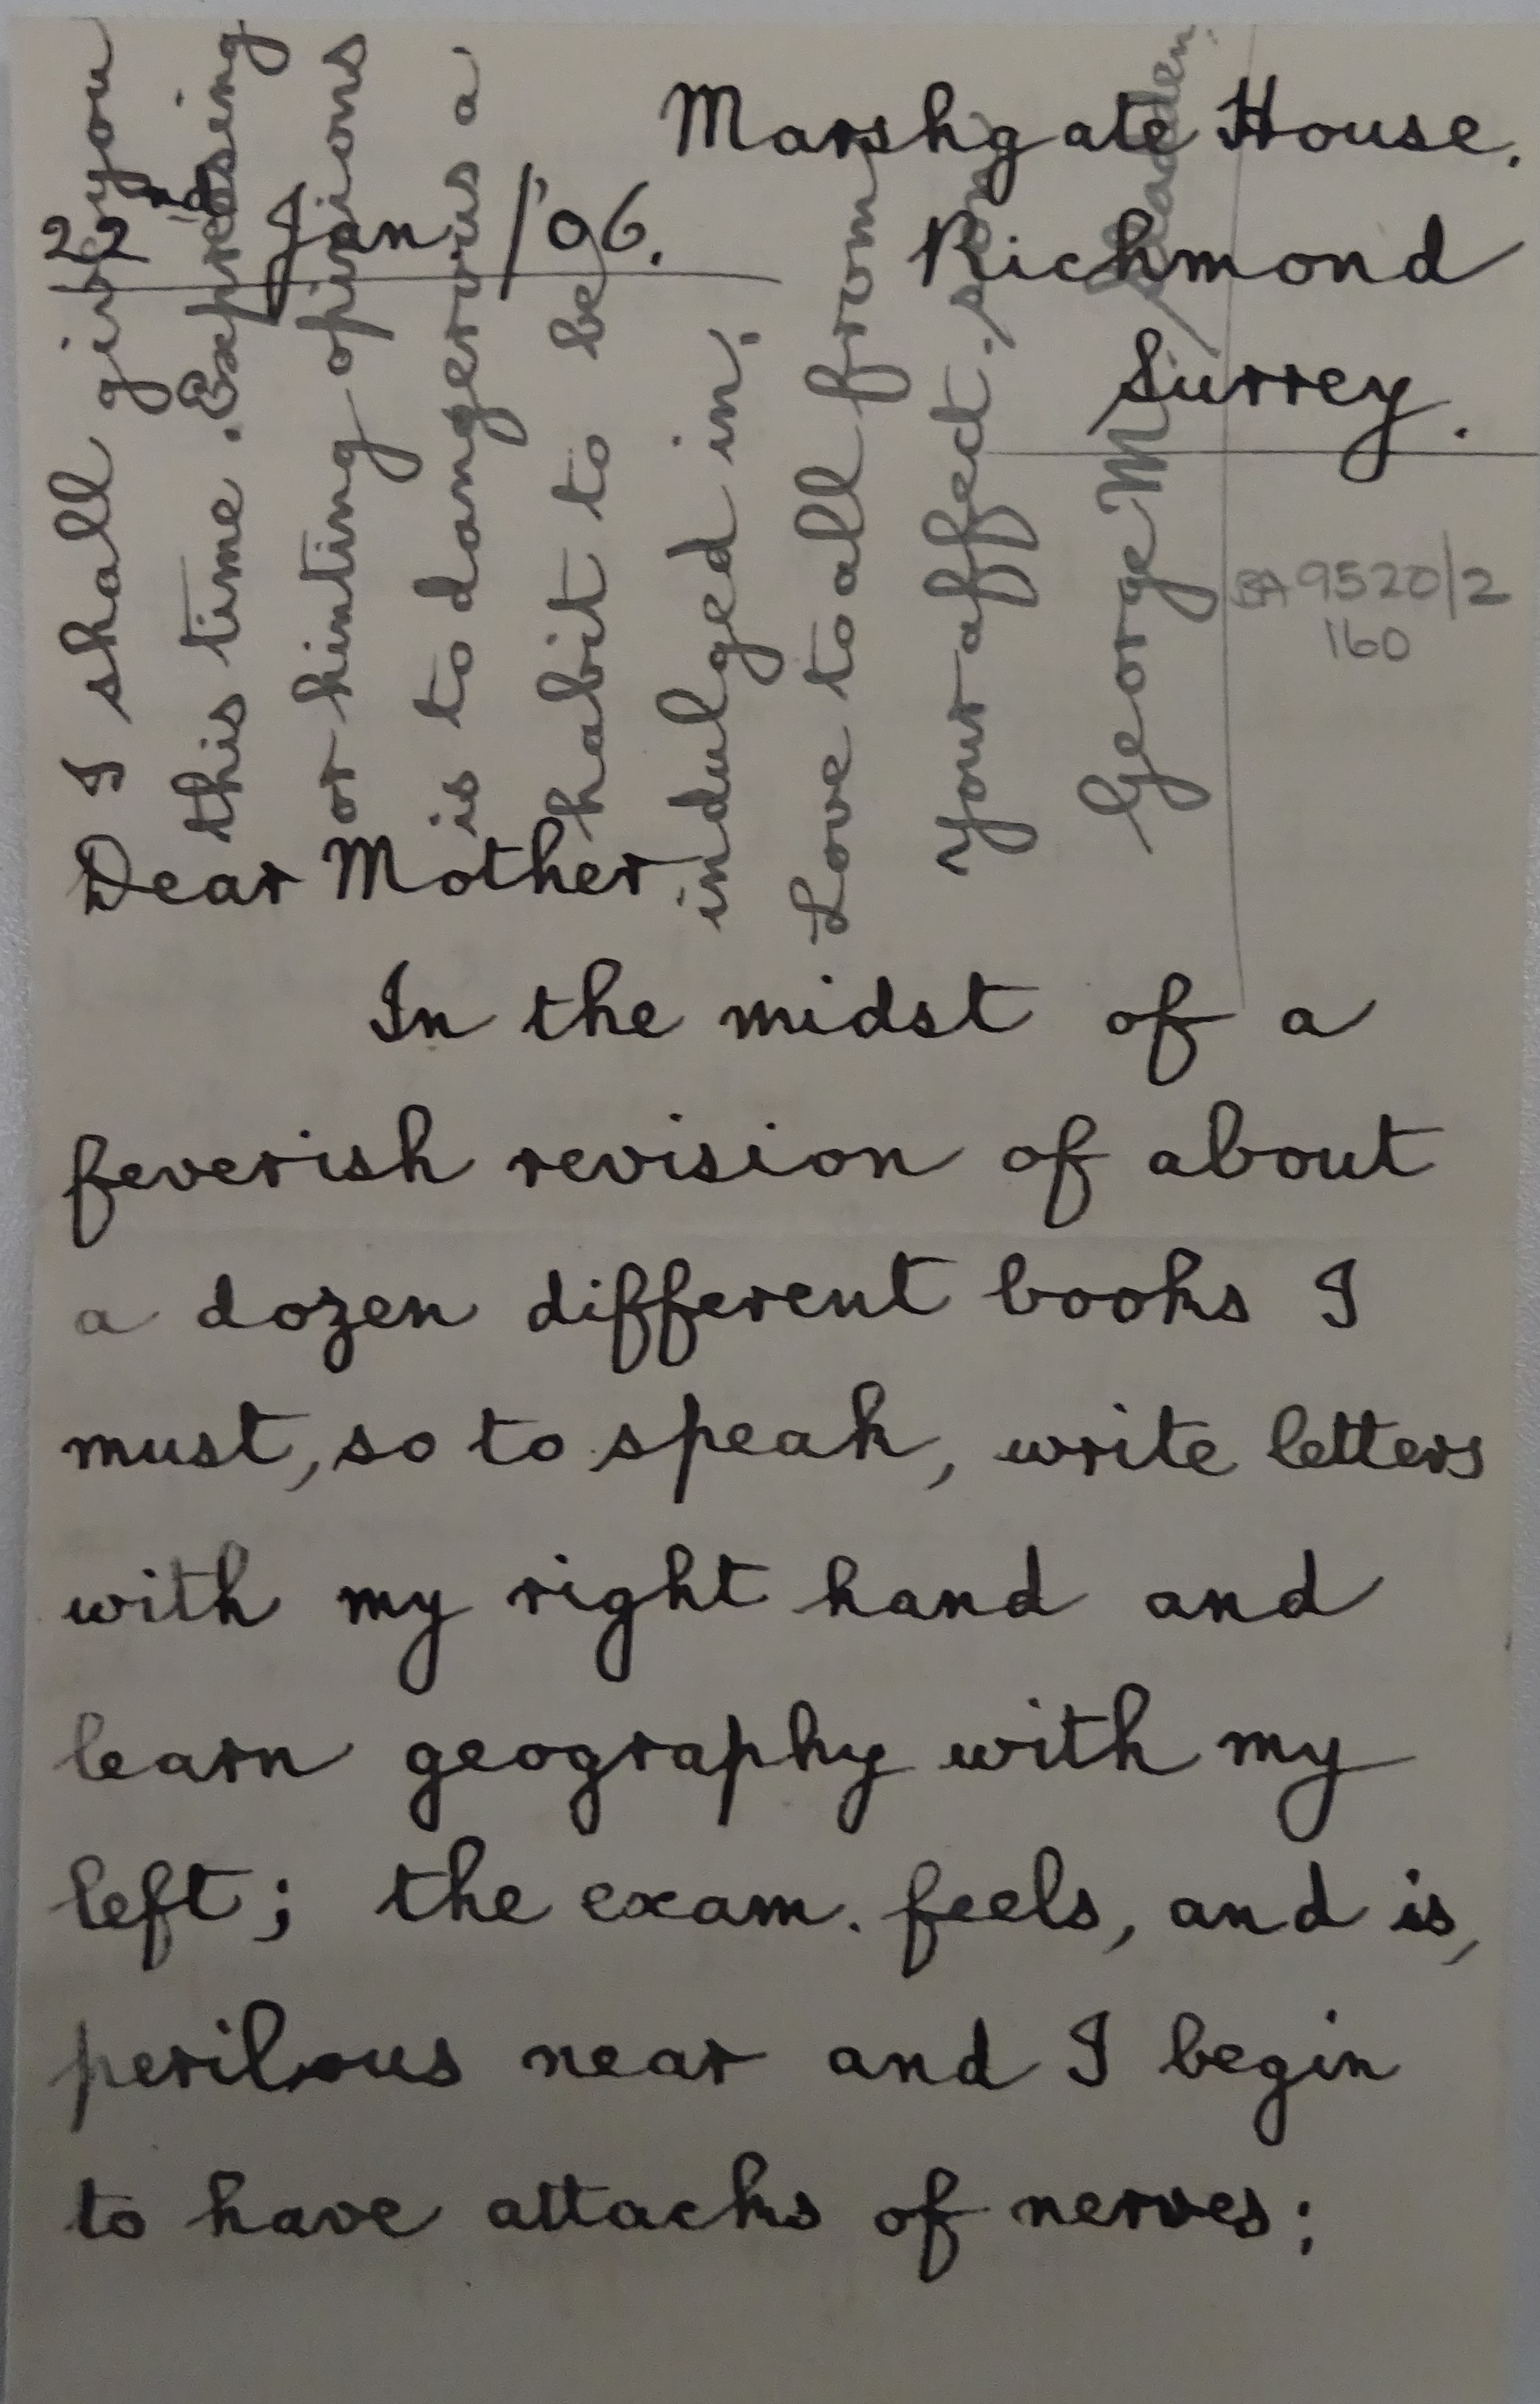 Marshgate House.
22nd Jan /'96.
Richmond
Surrey.
BA 9520/2
160
Dear Mother
In the midst of a
feverish revision of about
a dozen different books I
must, so to speak, write letters
with my right hand and
learn geography with my
left; the exam. feels, and is,
perilous near and I begin
to have attacks of nerves;
I shall give you
this time. Expressing
or hinting opinions
is to dangerous a
habit to be
indulged in.
Love to all from
Your affect. son
George M